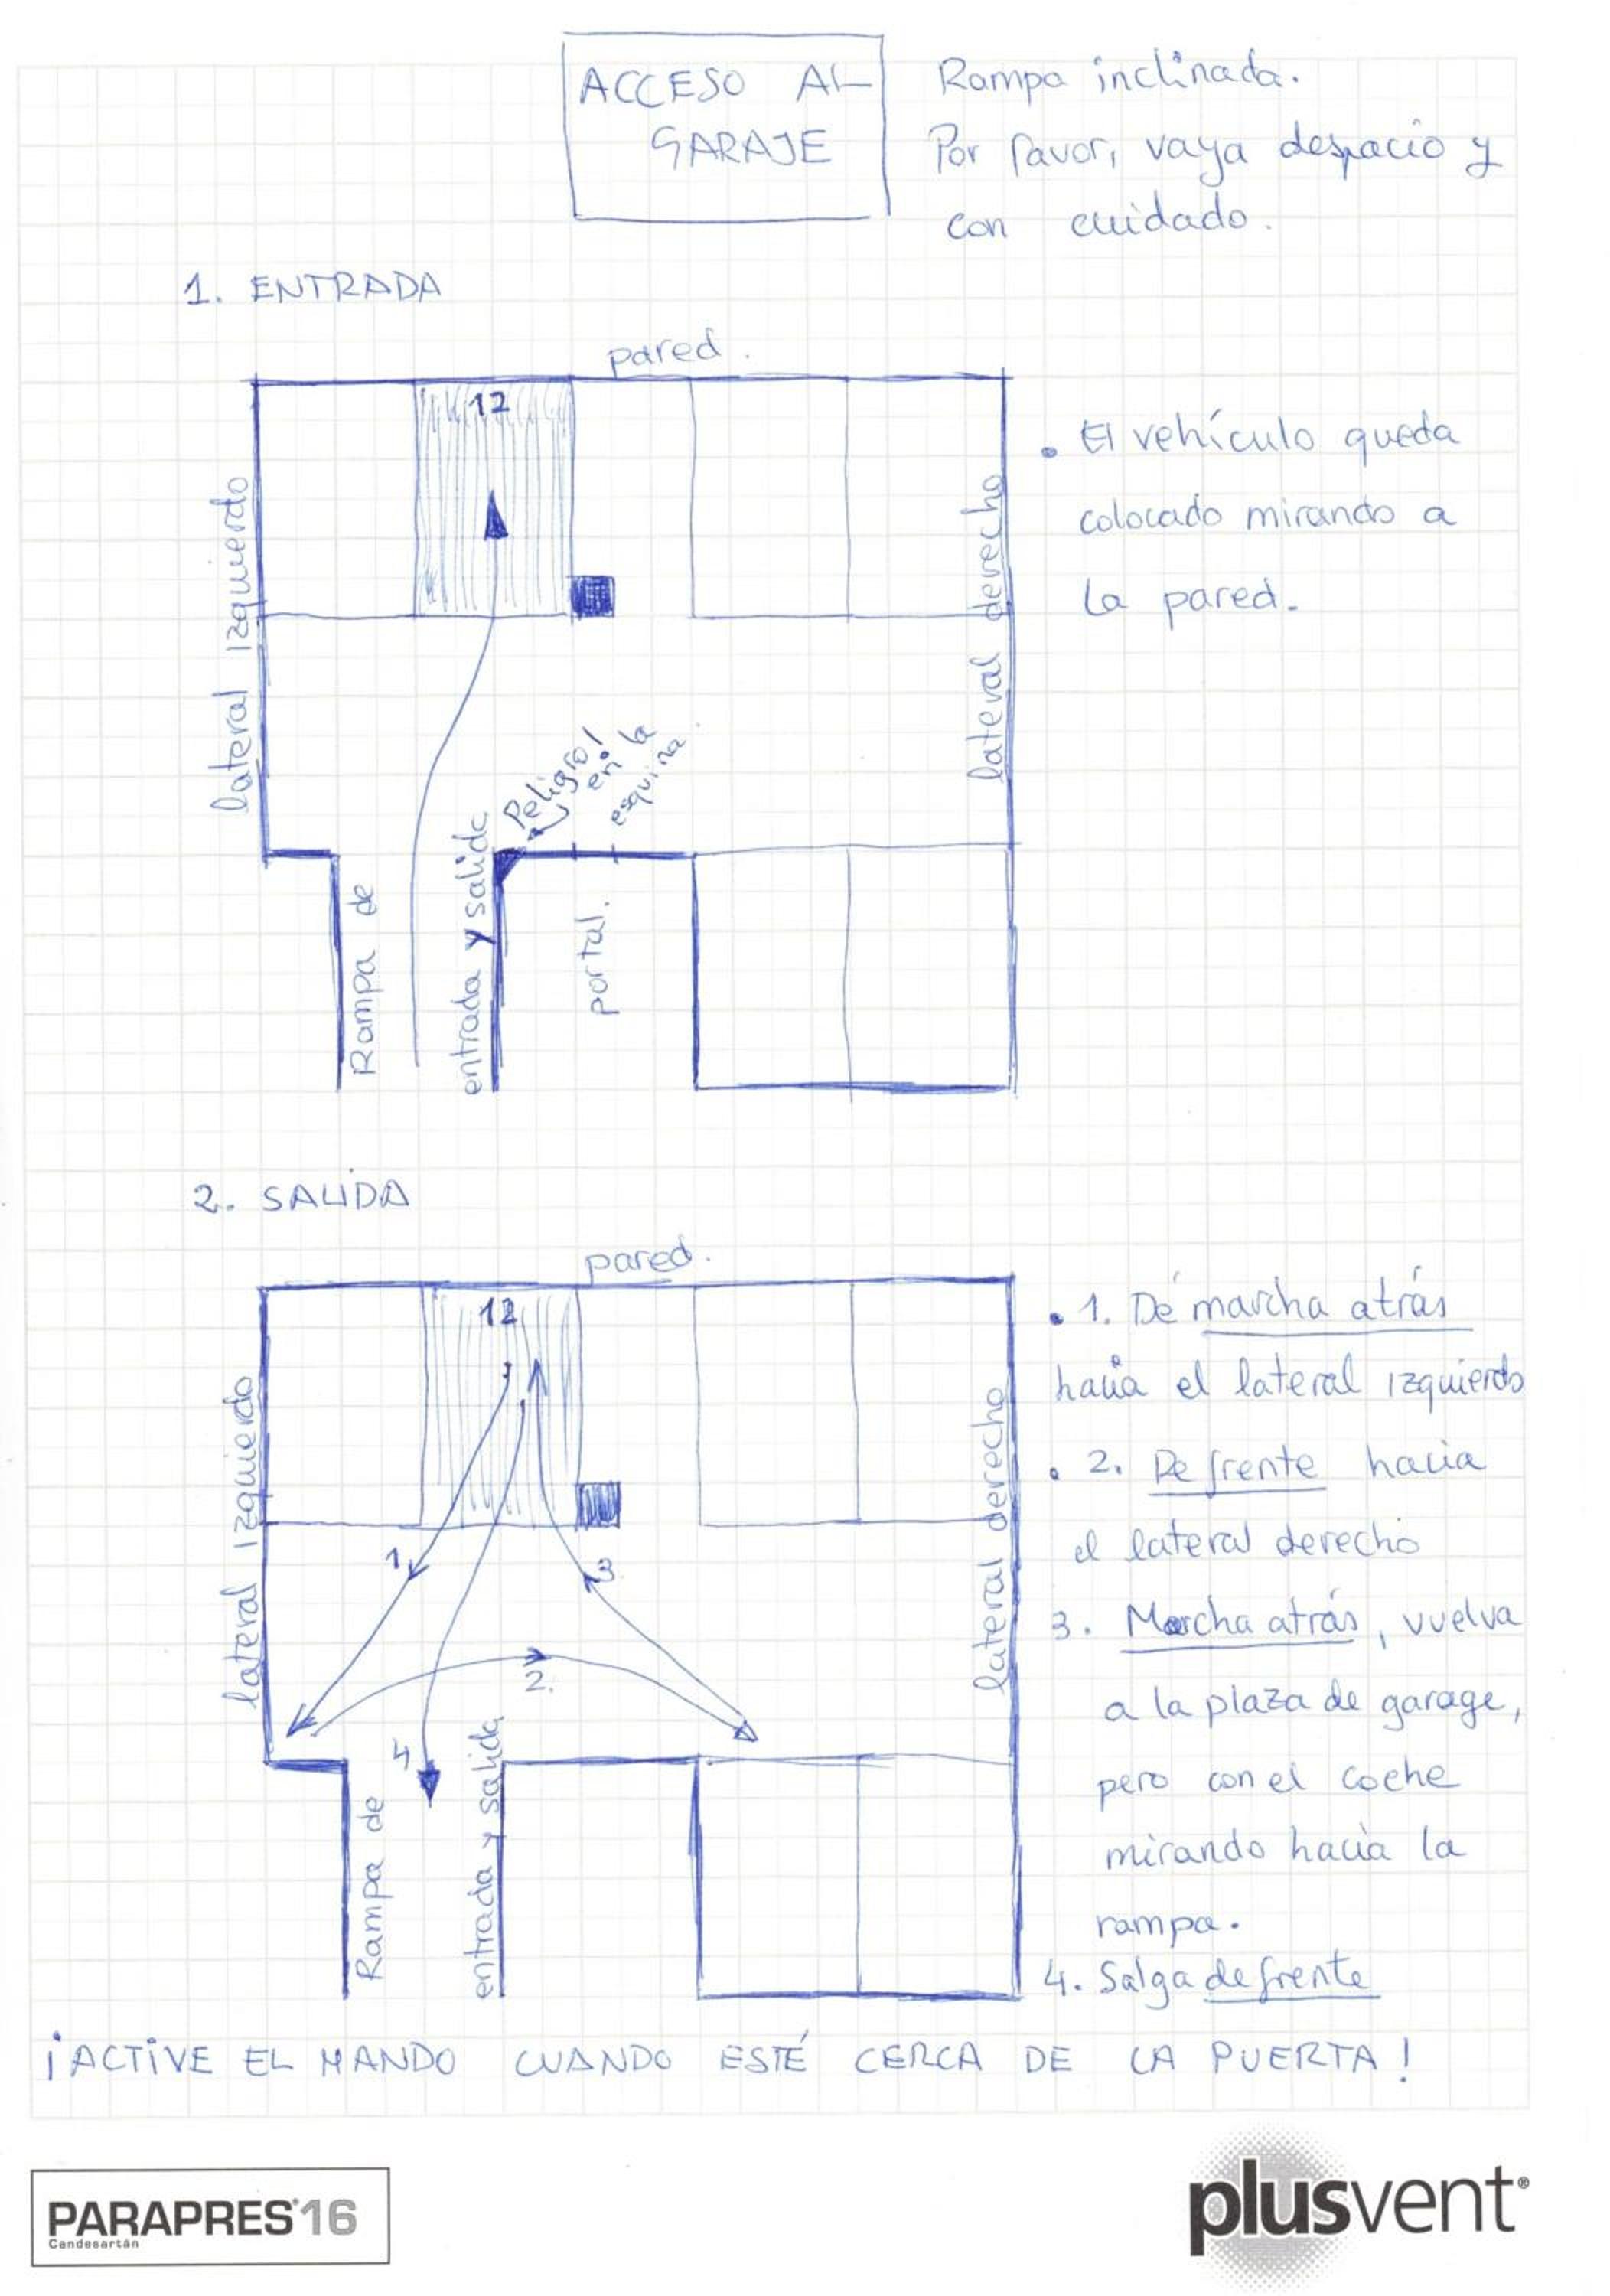 ACCESO AL
GARAJE
Rampa inclinada.
Por favor, vaya despacio y
con cuidado.
1. ENTRADA
pared.
12
lateral izquierdo
lateral derecho
• El vehículo queda
colocado mirando a
la pared.
Peligro!
en la
esquina.
Rampa de
entrada y salida
portal.
2. SALIDA
pared.
12
lateral izquierdo
lateral derecho
1
2.
3
4
Rampa de
entrada y salida
• 1. Dé marcha atrás
hacia el lateral izquierdo
• 2. De frente hacia
el lateral derecho
3. Marcha atrás, vuelva
a la plaza de garage,
pero con el coche
mirando hacia la
rampa.
4. Salga de frente
¡ACTIVE EL MANDO CUANDO ESTÉ CERCA DE LA PUERTA!
PARAPRES®16
Candesartán
plusvent®